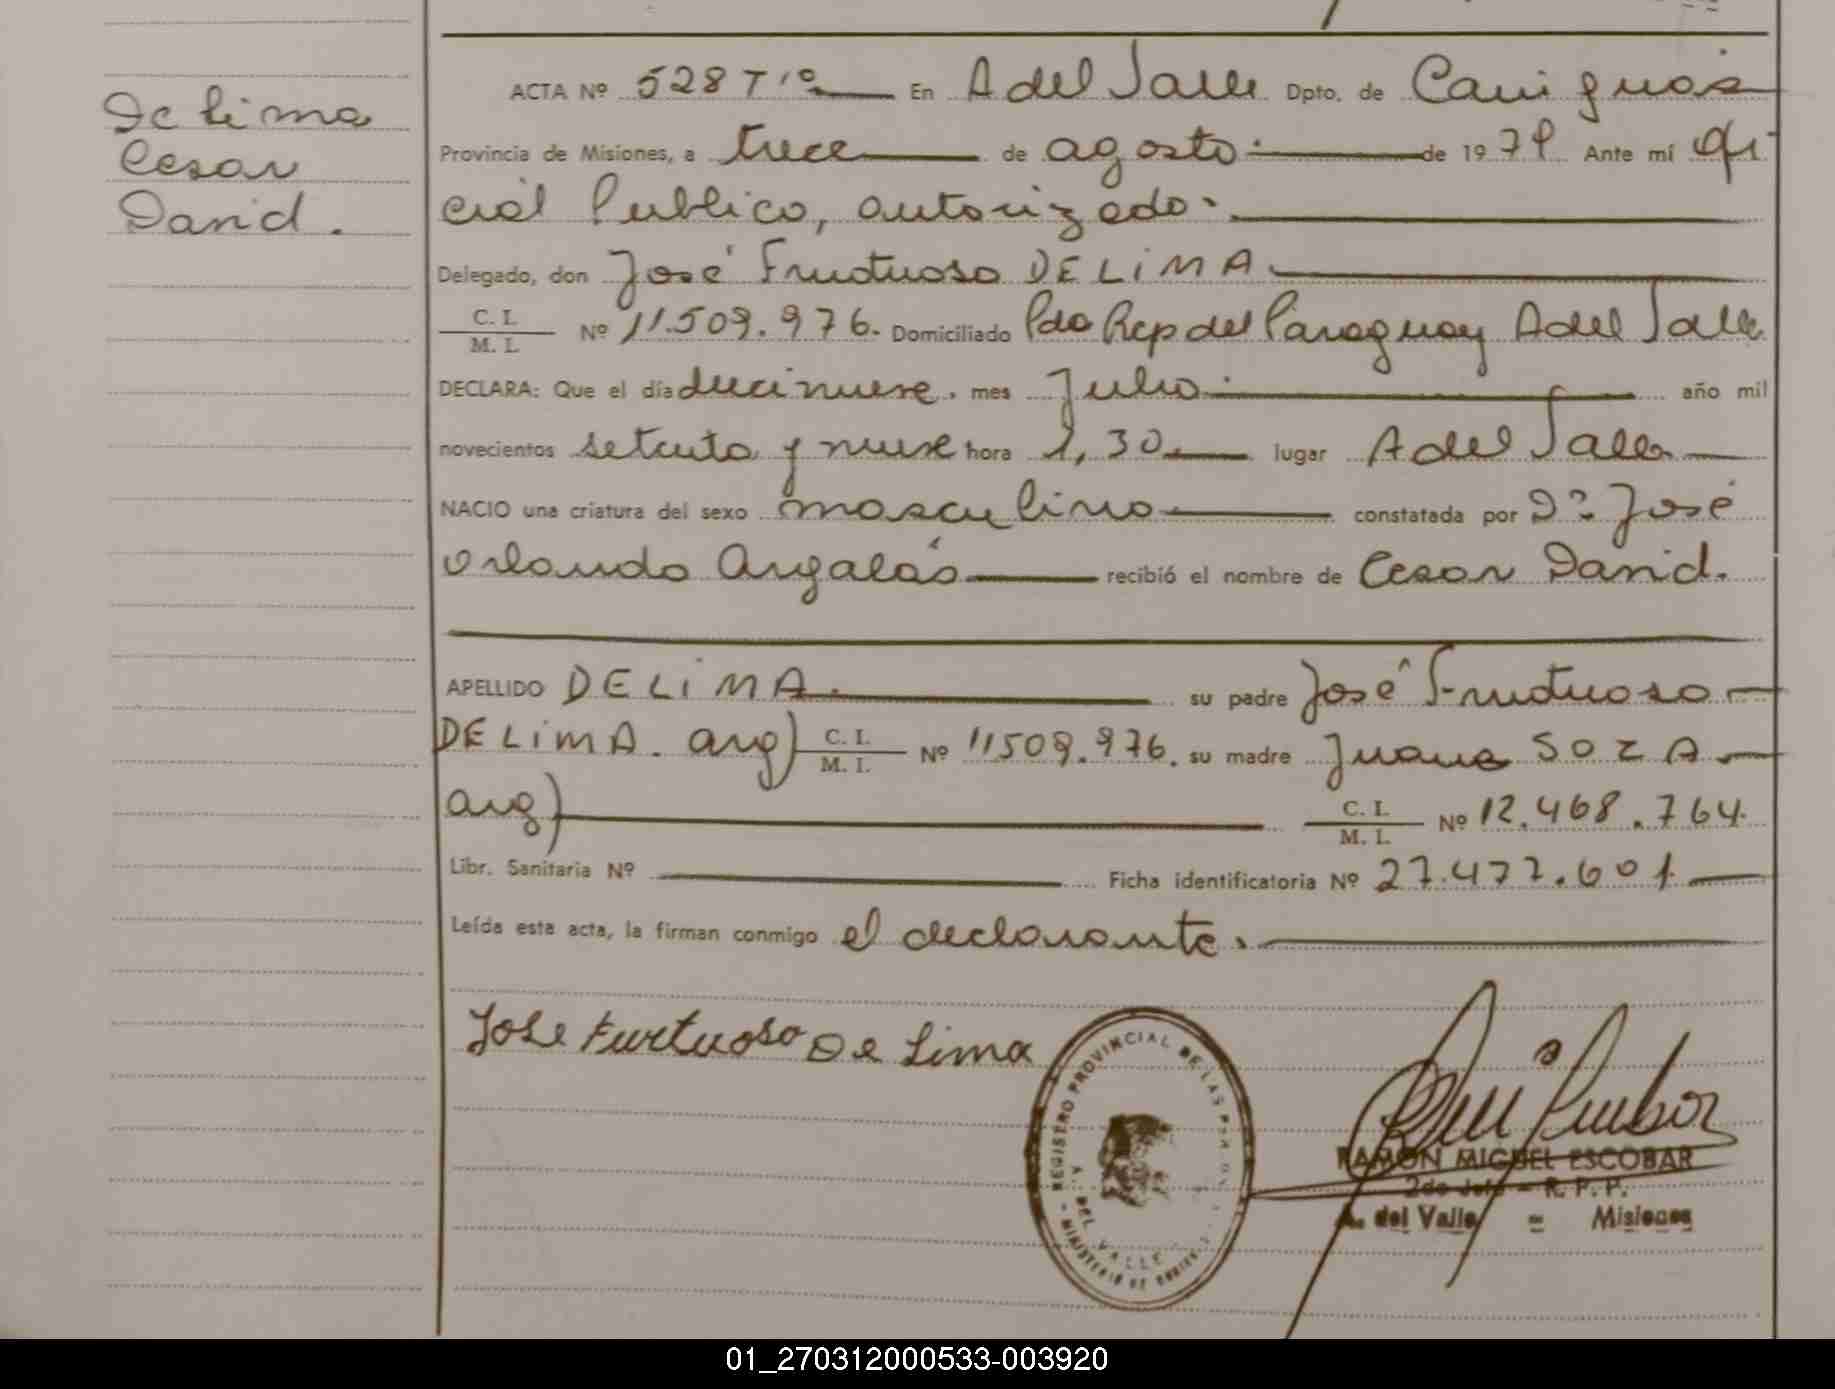 De Lima
Cesar
David.
ACTA Nº 528 Tº En A del Valle Dpto. de Cainguás
Provincia de Misiones, a trece de agosto de 1979 Ante mí Ofi
cial Publico, autorizado.
Delegado, don José Fructuoso DE LIMA
C. I.
M. I. Nº 11.509.976. Domiciliado Pdo Rep del Paraguay A del Valle
DECLARA: Que el día diecinueve. mes Julio año mil
novecientos setenta y nueve hora 1,30 lugar A del Valle
NACIO una criatura del sexo masculino constatada por Dr José
Orlando Argalás recibió el nombre de Cesar David.
APELLIDO DE LIMA. su padre José Fructuoso
DE LIMA. arg) C. I.
M. I. Nº 11509.976. su madre Juana SOZA
arg) C. I.
M. I. Nº 12.468.764.
Libr. Sanitaria Nº Ficha identificatoria Nº 27.477.601.
Leída esta acta, la firman conmigo el declarante.
Jose Furtuoso De Lima
REGISTRO PROVINCIAL DE LAS
A. DEL VALLE
MINISTERIO DE
RAMON MIGUEL ESCOBAR
2do Jefe - R. P. P.
A. del Valle = Misiones
01_270312000533-003920